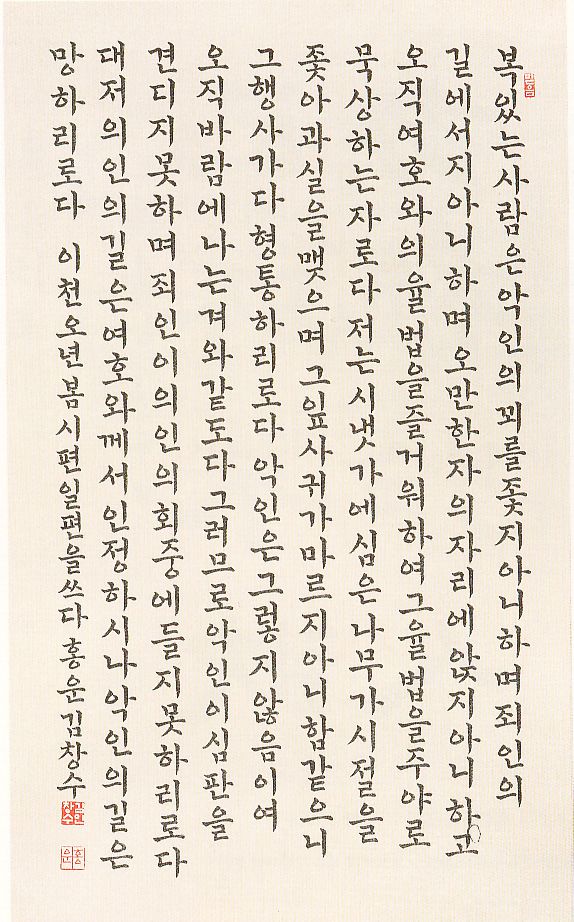 복있는사람은악인의꾀를좇지아니하며죄인의
길에서지아니하며오만한자의자리에앉지아니하고
오직여호와의율법을즐거워하여그율법을주야로
묵상하는자로다저는시냇가에심은나무가시절을
좇아과실을맺으며그잎사귀가마르지아니함같으니
그행사가다형통하리로다악인은그렇지않음이여
오직바람에나는겨와같도다그러므로악인이심판을
견디지못하며죄인이의인의회중에들지못하리로다
대저의인의길은여호와께서인정하시나악인의길은
망하리로다 이천오년봄시편일편을쓰다홍운김창수
홍운